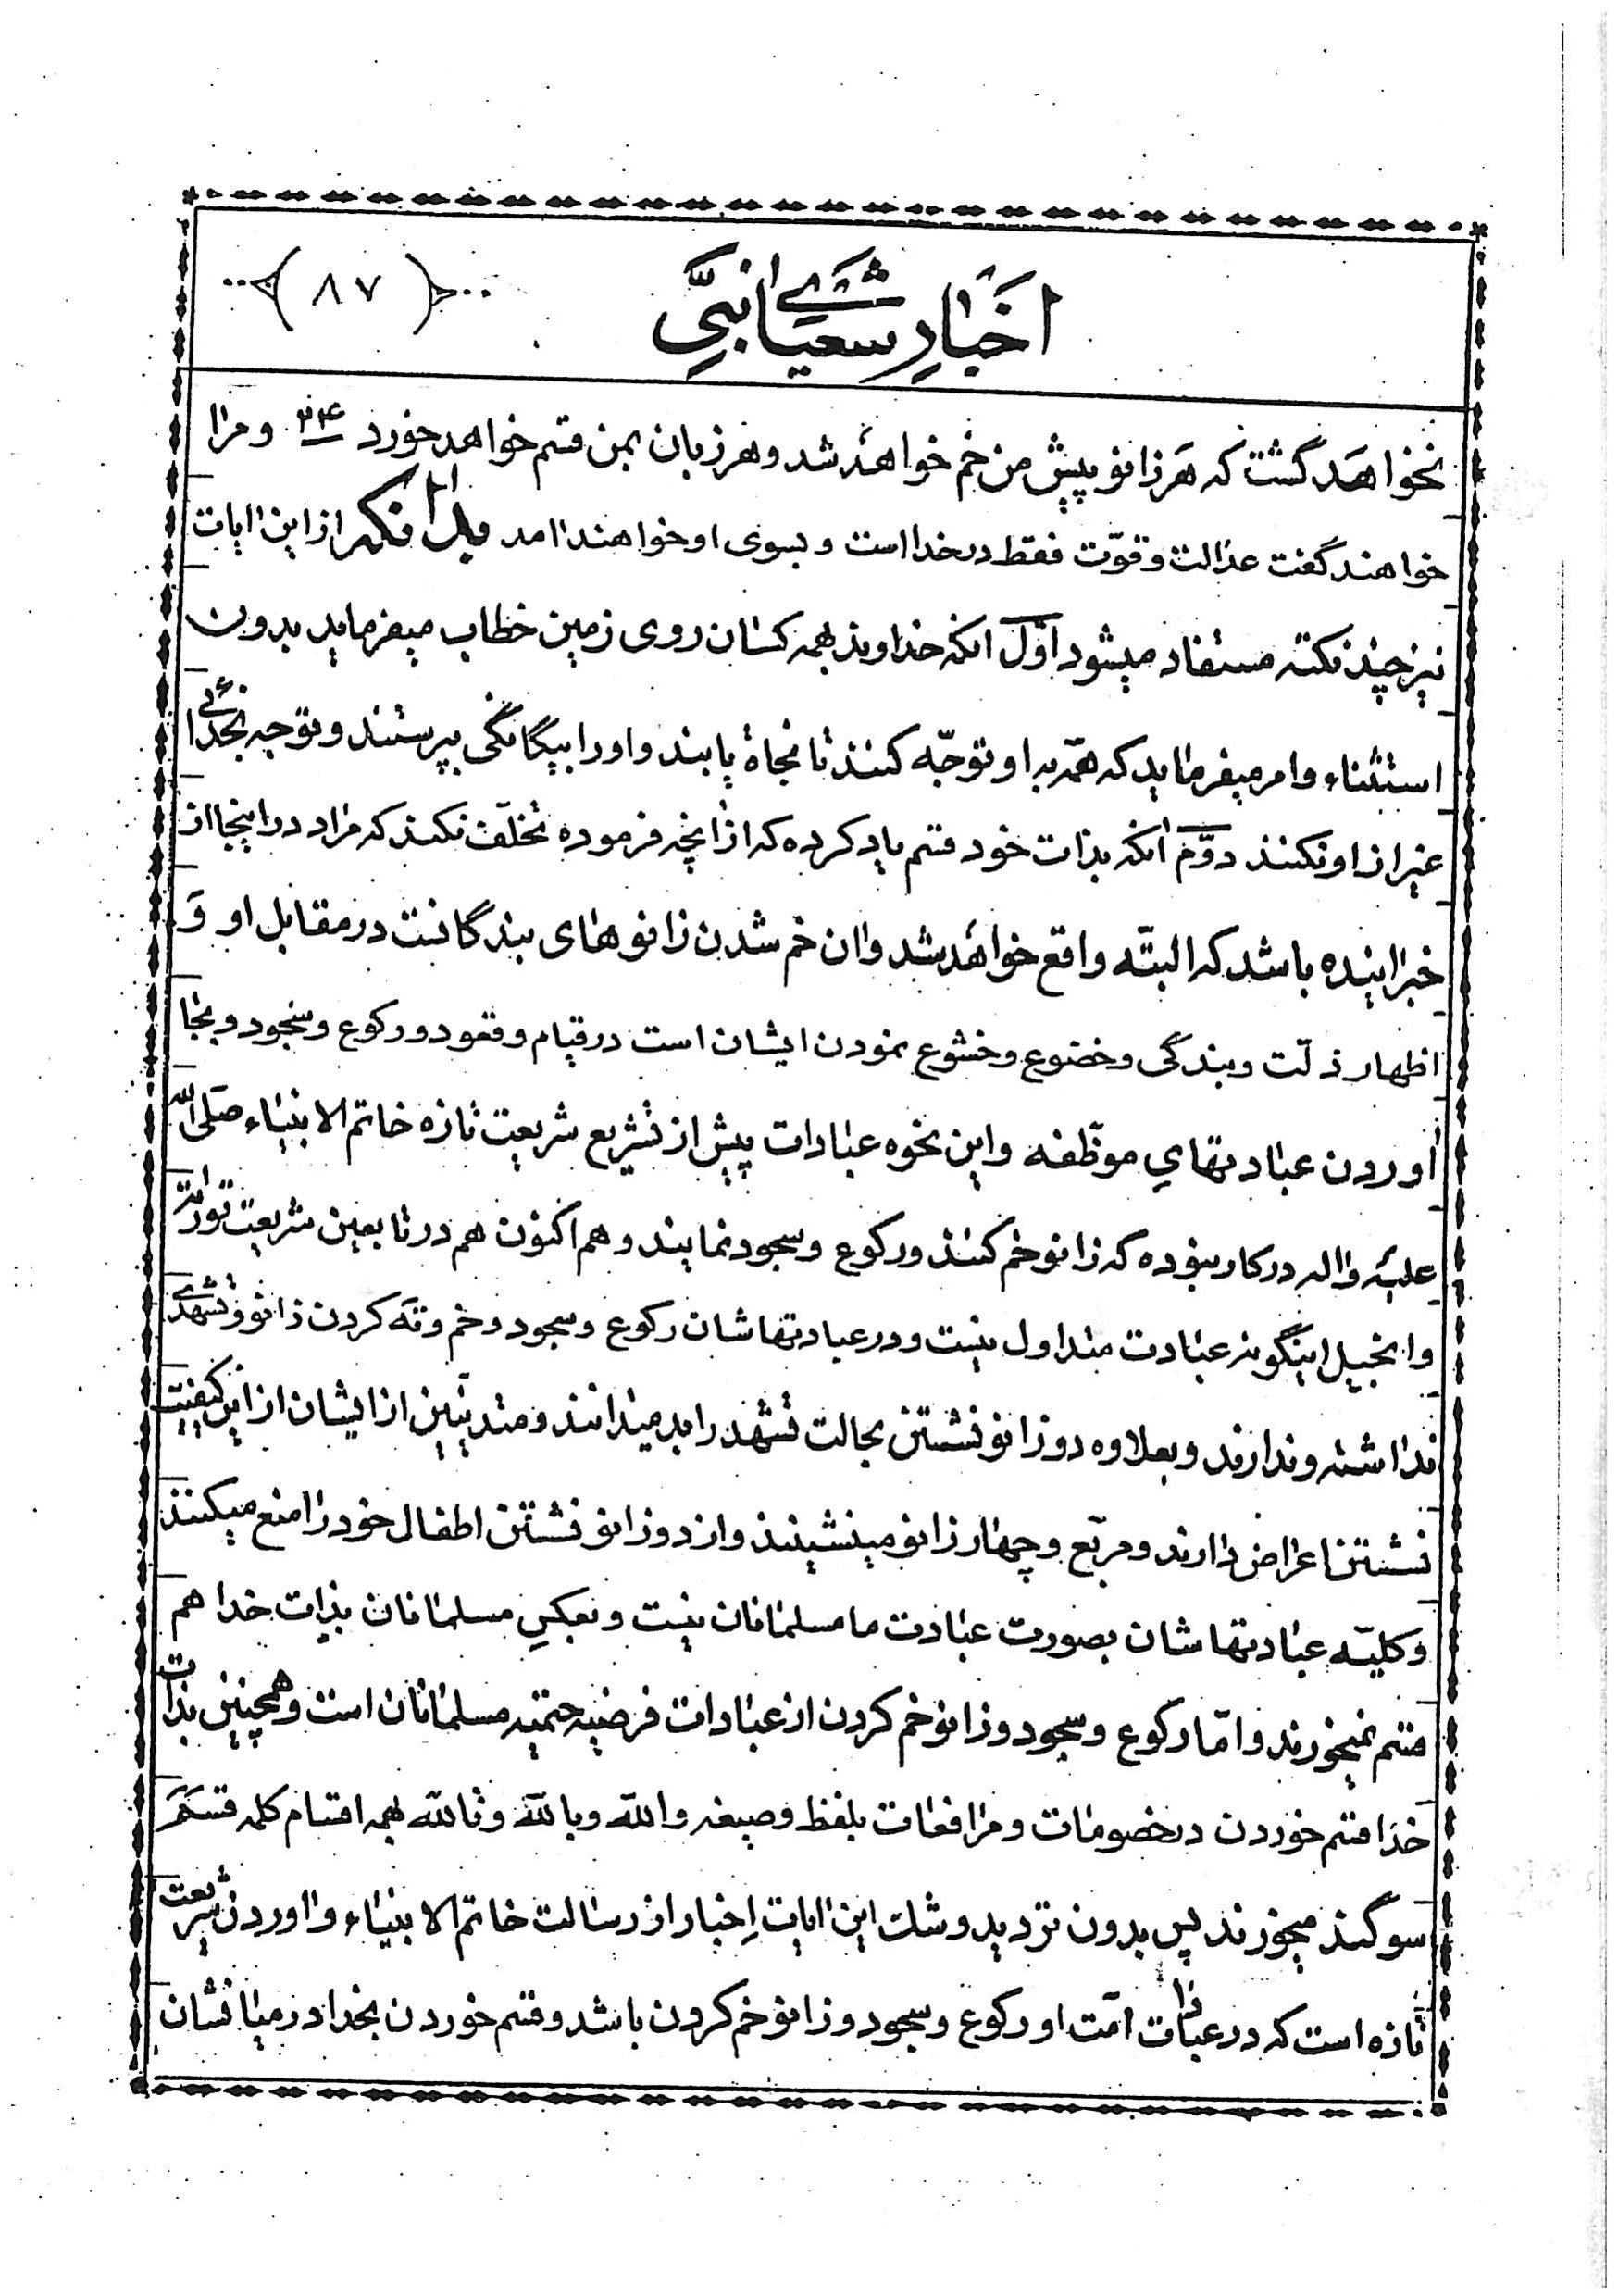 اخبارِ شعیای نبیّ
﴿ ۸۷ ﴾
نخواهد گشت که هر زانو پیش من خم خواهد شد و هر زبان بمن قسم خواهد خورد ۲۴ و مرا
خواهند گفت عدالت و قوّت فقط در خدا است و بسوی او خواهند آمد از این آیات
نیز چند نکته مستفاد میشود اوّل آنکه خداوند بهمه کسان روی زمین خطاب میفرماید بدون
استثناء و امر میفرماید که همه به او توجّه کنند تا نجاة یابند و او را بیگانگی بپرستند و توجه بخدائی
غیر از او نکنند دوّم آنکه بذات خود قسم یاد کرده که از آنچه فرموده تخلّف نکند که مراد در اینجا از
خبر آینده باشد که البتّه واقع خواهد شد و آن خم شدن زانوهای بندگانست در مقابل او وَ
اظهار ذلّت و بندگی و خضوع و خشوع نمودن ایشان است در قیام و قعود و رکوع و سجود و بجا
آوردن عبادتهایِ موظّفه و این نحوه عبادات پیش از تشریع شریعت تازه خاتم الانبیاء صلی الله
علیه و آله در کار نبوده که زانو خم کنند و رکوع و سجود نمایند و هم اکنون هم در تابعین شریعت توراة
و انجیل اینگونه عبادت متداول نیست و در عبادتهاشان رکوع و سجود و خم و ته کردن زانو و تشهدی
نداشته و ندارند و بعلاوه دو زانو نشستن بحالت تشهد را بد میدانند و متدیّنین از ایشان از این کیفیت
نشستن اعراض دارند و مربّع و چهار زانو مینشینند و از دو زانو نشستن اطفال خود را منع میکنند
وَ کلیّه عبادتهاشان بصورت عبادت ما مسلمانان نیست و بعکسِ مسلمانان بذات خدا هم
قسم نمیخورند و امّا رکوع و سجود و زانو خم کردن از عبادات فرضیه حتمیه مسلمانان است و همچنین بذات
خدا قسم خوردن در خصومات و مرافعات بلفظ و صیغه والله و بالله و تالله بهمه اقسام کلمه قَسَم
سوگند میخورند پس بدون تردید و شك این آیات اِخبار از رسالت خاتم الانبیاء و آوردن شریعت
تازه است که در عبادات امّت او رکوع و سجود و زانو خم کردن باشد و قسم خوردن بخدا در میانشان